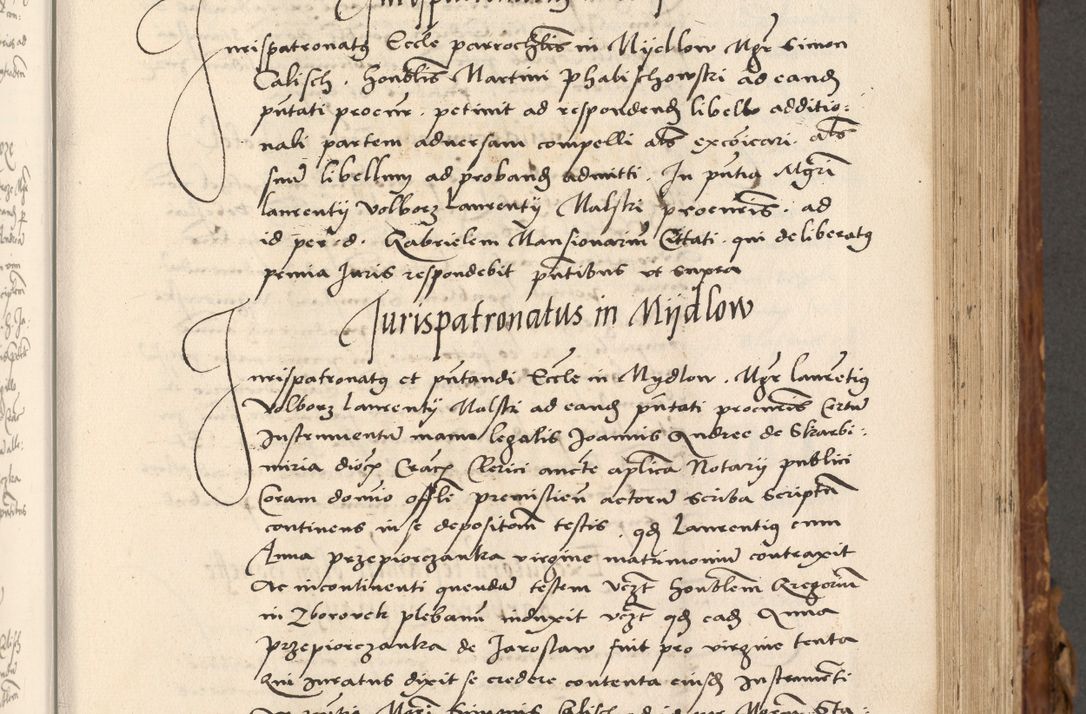 Jurispatronatꝯ Eccle parrochlis in Mijdlow Mgr Simon
Calisch . Honblis Martini Phabischowski ad eandꝫ
pntati procur . petiuit ad respondendꝫ libello additio:
nali partem aduersam compelli als excoicari . als
suum libellum ad probandꝫ admitti . In pntia Mgri
Laurentij Volborz Laurentij Malski procuris . ad
id per d . Gabrielem Mansionarium Cittati . qui deliberatꝯ
premia Juris respondebit pntibus vt supra
Jurispatronatus in Mijdlow
Jurispatronatꝯ et pntandi Eccle in Mijdlow . Mgr Laurentiꝯ
Volborz Laurentij Malski ad eandꝫ pntati procuris Certum
Instrumentum manu legalis Joannis Andree de Skarbi:
miria dioc Crac Clerici aucte aplica Notarij publici
Coram domino offli premislien actorum scriba Scriptum
continens in se depositiom testis . qꝫ Laurentiꝯ cum
Anna Przepiorczanka virgine matrimonium contraxit
Ac incontinenti quendam testem vczt Honblem Gregorium
in Zborovek plebanum induxit vczt qꝫ eadꝫ Anna
Przepiorczanka de Jaroslaw fuit pro virgine tenta
Qui iuratus dixit se credere contenta eiusdꝫ Instrumenti